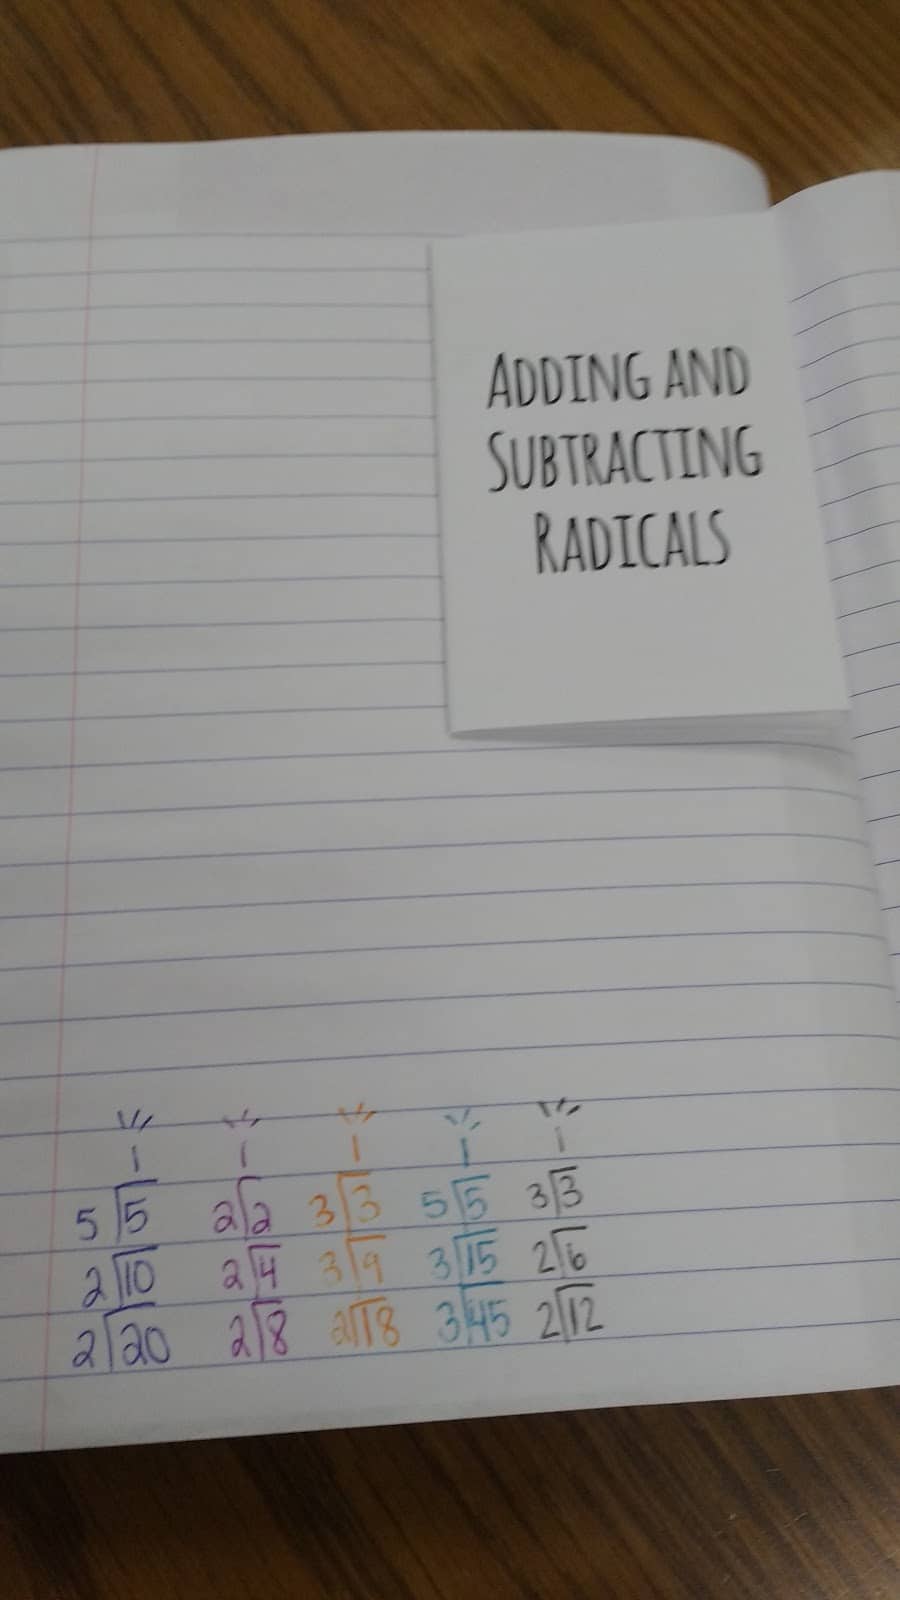 ADDING AND
SUBTRACTING
RADICALS
1 1 1 1 1
5√5 2√2 3√3 5√5 3√3
2√10 2√4 3√9 3√15 2√6
2√20 2√8 2√18 3√45 2√12